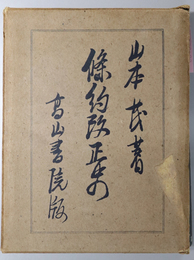 山本茂著
條約改正史
高山書院版